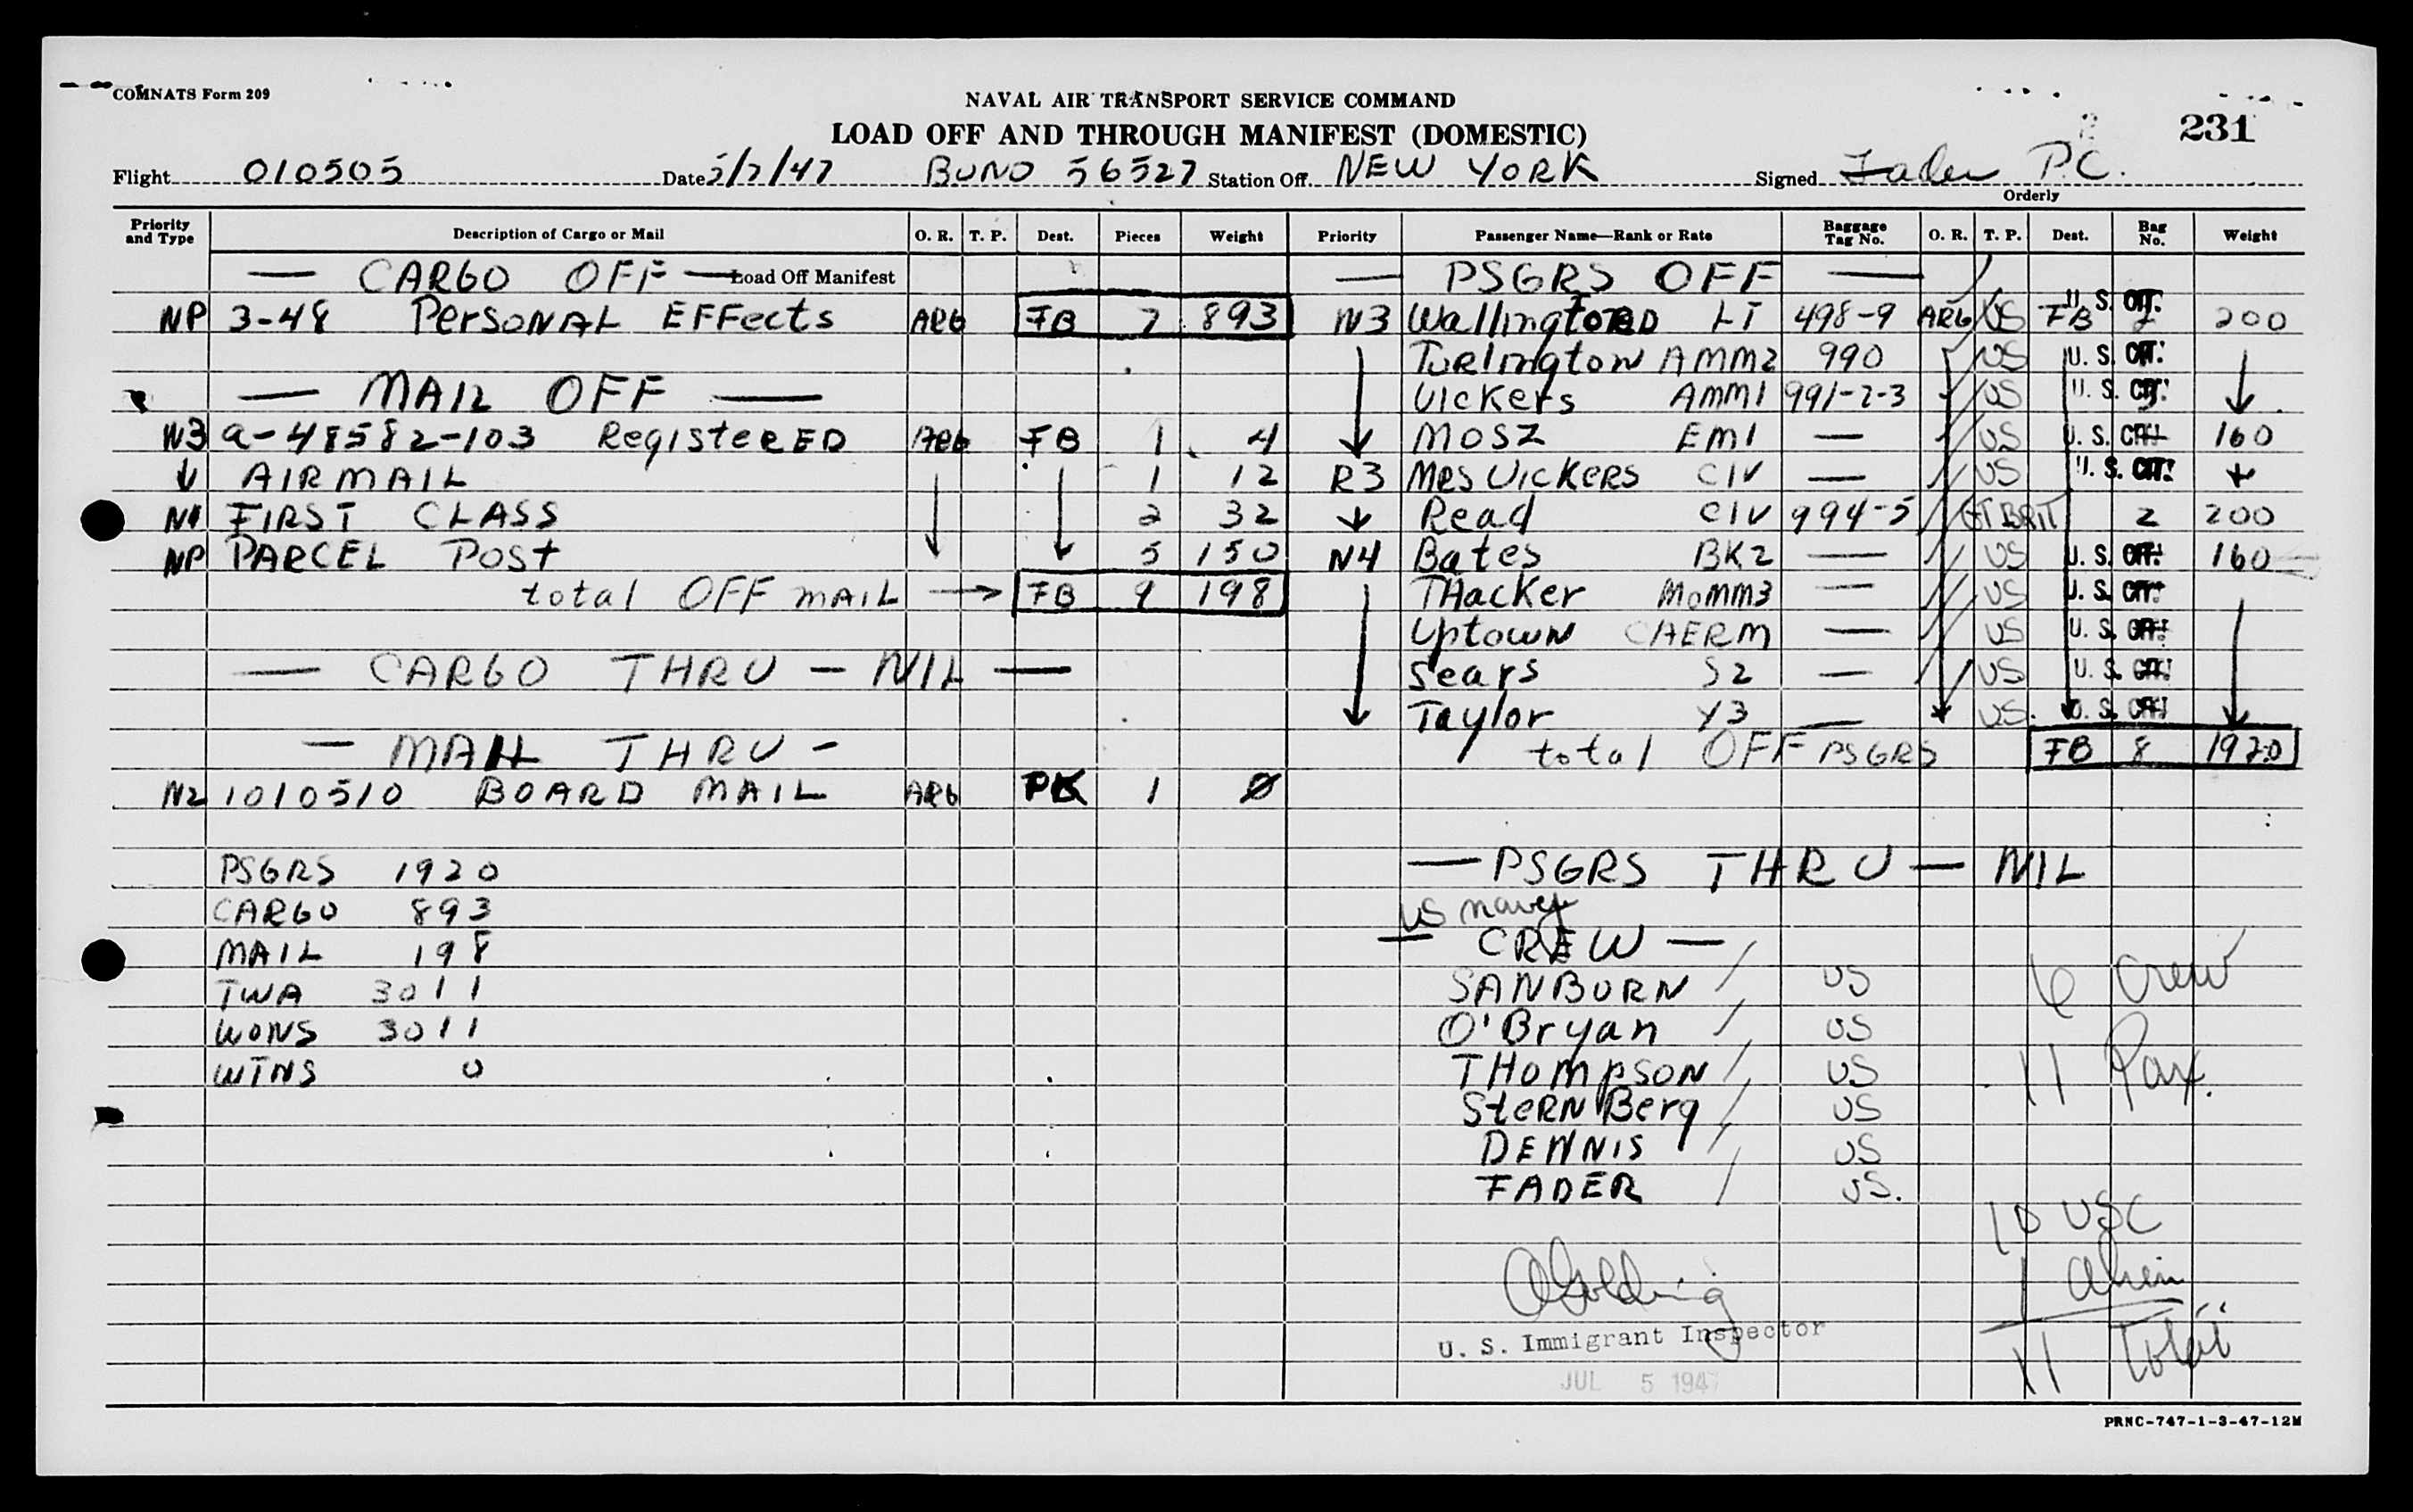 COMNATS Form 209
NAVAL AIR TRANSPORT SERVICE COMMAND
LOAD OFF AND THROUGH MANIFEST (DOMESTIC)
231
Flight 010505 Date 5/7/47 BUNO 56527 Station Off. NEW YORK Signed Fader P.C.
Orderly
Priority and Type Description of Cargo or Mail O. R. T. P. Dest. Pieces Weight Priority Passenger Name—Rank or Rate Baggage Tag No. O. R. T. P. Dest. Bag No. Weight
— CARGO OFF — Load Off Manifest
NP 3-48 Personal Effects ARG FB 7 893
— MAIL OFF —
N3 a-48582-103 Registered ARG FB 1 4
AIRMAIL 1 12
N1 FIRST CLASS 2 32
NP PARCEL POST 5 150
total OFF MAIL → FB 9 198
— CARGO THRU — NIL —
— MAIL THRU —
N2 1010510 BOARD MAIL ARG PK 1 Ø
PSGRS 1920
CARGO 893
MAIL 198
TWA 3011
WONS 3011
WTNS 0
— PSGRS OFF —
N3 Wallington LT 498-9 ARG US FB U. S. CIT. 2 200
Turlington AMM2 990 US U. S. CIT.
Vickers AMM1 991-2-3 US U. S. CIT. 3
Mosz EM1 — US U. S. CIT. 160
R3 Mrs Vickers CIV — US U. S. CIT.
Read CIV 994-5 GT BRIT 2 200
N4 Bates BK2 — US U. S. CIT. 160
Thacker MoMM3 — US U. S. CIT.
Uptown CAERM — US U. S. CIT.
Sears S2 — US U. S. CIT.
Taylor Y3 — US. U. S. CIT.
total OFF PSGRS FB 8 1920
— PSGRS THRU — NIL
US Navy
— CREW —
SANBORN US
O'Bryan US
THOMPSON US
SternBerg US
DENNIS US
FADER US.
6 Crew
11 Pax.
10 USC
1 alien
11 Total
U. S. Immigrant Inspector
JUL 5 1947
PRNC-747-1-3-47-12M